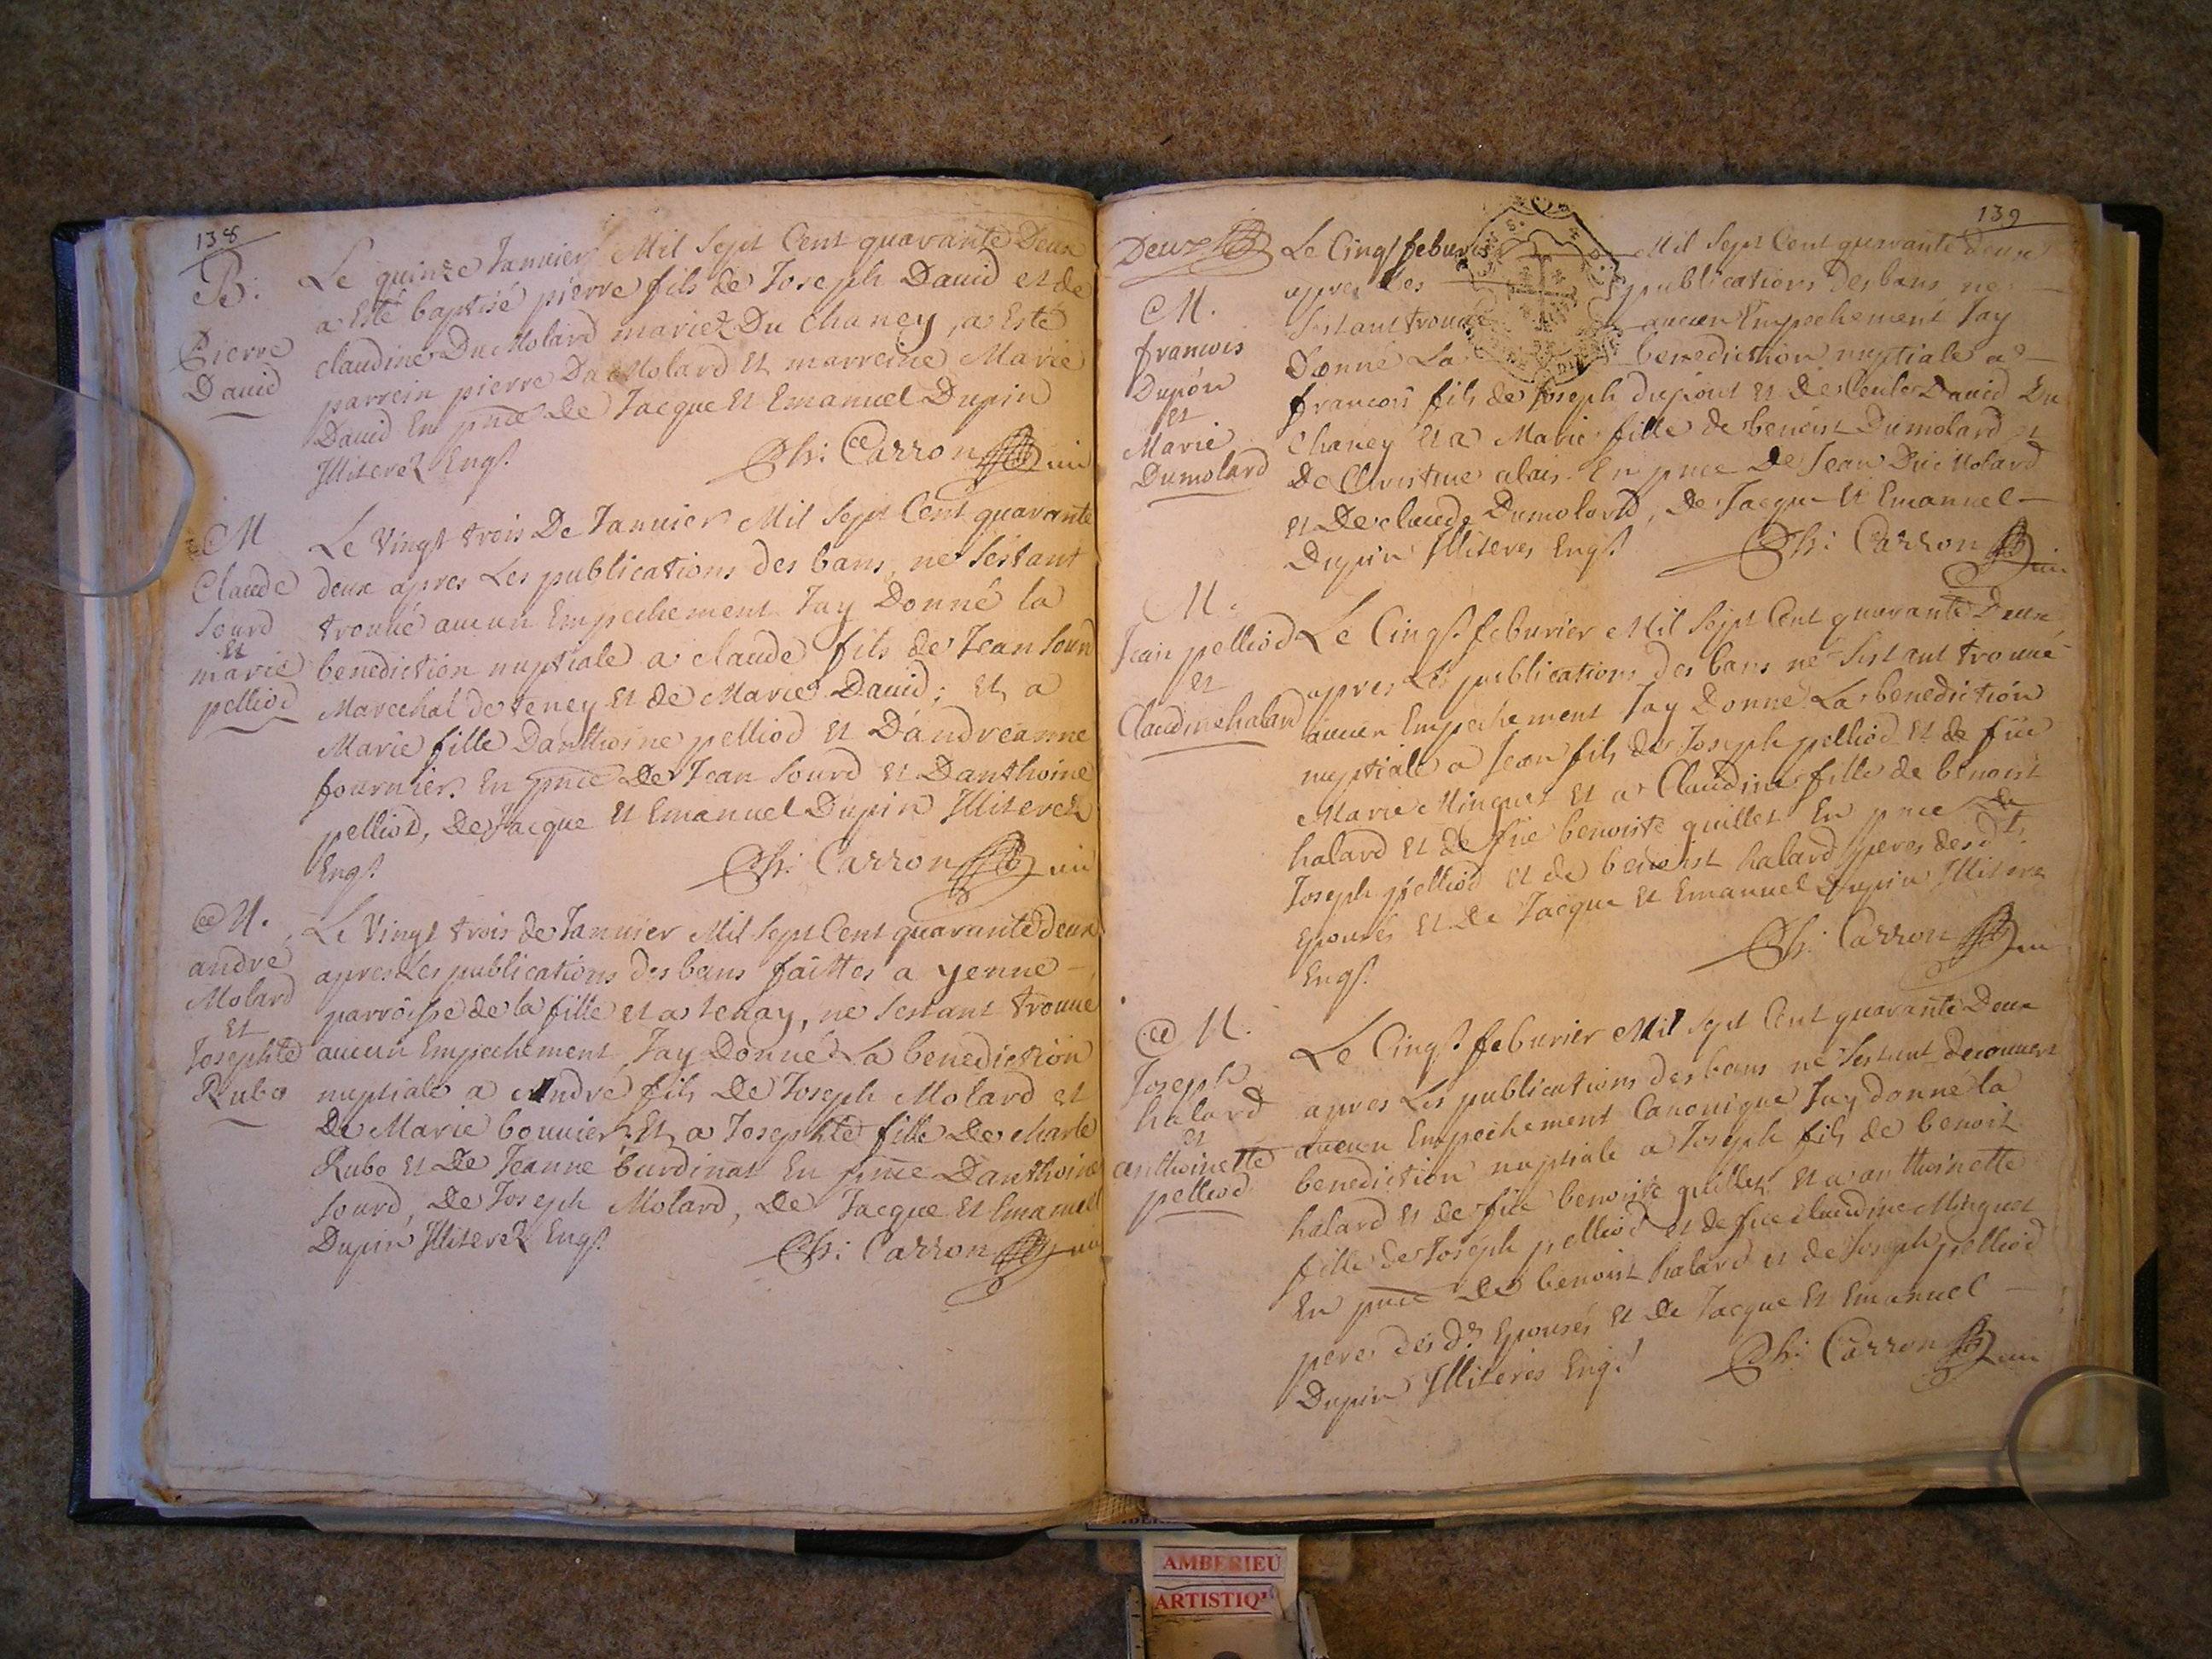 138
B:
Pierre
David
Le quinze Januier Mil Sept Cent quarante Deux
a Esté baptisé pierre fils de Joseph Dauid et de
claudine Du Molard mariez Du Chaney, a Esté
parrein pierre Du Molard et marreine Marie
Dauid En pnce De Jacque Et Emanuel Dupin
Illiterez Enqs.
Ph: Carron
M
Claude
Sourd
et
marie
pelliod
Le Vingt trois De Januier Mil Sept Cent quarante
deux apres Les publications des bans, ne Sestant
trouué aucun Empechement Jay Donné la
benediction nuptiale a claude fils de Jean Sourd
Marechal de teney Et de Marie Dauid; Et a
Marie fille Danthoine pelliod Et Dandreanne
fournier. En pnce De Jean Sourd Et Danthoine
pelliod, De Jacque Et Emanuel Dupin Illiterez
Enqs.
Ph: Carron
M.
andre
Molard
Et
Josephte
Rubo
Le Vingt trois de Januier Mil Sept Cent quarante deux
apres Les publications des bans faittes a yenne
parroisse de la fille et a tenay, ne Sestant trouue
aucun Empechement, Jay Donné La benediction
nuptiale a Andre fils De Joseph Molard et
De Marie bouuier; Et a Josephte fille De charle
Rubo Et De Jeanne burdinat En pnce Danthoine
Sourd, De Joseph Molard, De Jacque Et Emanuel
Dupin Illiterez Enqs.
Ph: Carron
139
Deux
M.
francois
Dupón
et
Marie
Dumolard
Le Cinqs feburier Mil Sept Cent quarante Deux
apres Les publications des bans ne
Sestant trouué aucun Empechement Jay
Donné La benediction nuptiale a
francois fils de Joseph dupont Et de Dauid Du
Chaney Et a Marie fille de benoist Dumolard et
De Christine alais. En pnce De Jean Du Molard
Et De claude Dumolard, De Jacque Et Emanuel
Dupin Illiteres Enqs.
Ph: Carron
M.
Jean pelliod
et
Claudine halard
Le Cinqs. feburier Mil Sept Cent quarante Deux
apres Les publications des bans ne Sestant trouué
aucun Empechement Jay Donné La benediction
nuptiale a Jean fils de Joseph pelliod Et de füe
Marie Minguet Et a Claudine fille de benoist
halard Et de füe benoiste quillet En pnce de
Joseph pelliod Et de benoist halard peres desdts
Epousés Et De Jacque Et Emanuel Dupin Illiteres
Enqs.
Ph: Carron
M.
Joseph
halard
et
anthoinette
pelliod
Le Cinqs. feburier Mil Sept Cent quarante Deux
apres Les publications des bans ne Sestant decouuert
aucun Empechement Canonique Jay donné la
benediction nuptiale a Joseph fils de benoit
halard Et de füe benoiste quillet Et a anthoinette
fille de Joseph pelliod et de füe claudine Minguet
En pnce De benoist halard et de Joseph pelliod
peres des ds. Epousés Et De Jacque Et Emanuel
Dupin Illiteres Enqs.
Ph: Carron
AMBERIEU
ARTISTIQ